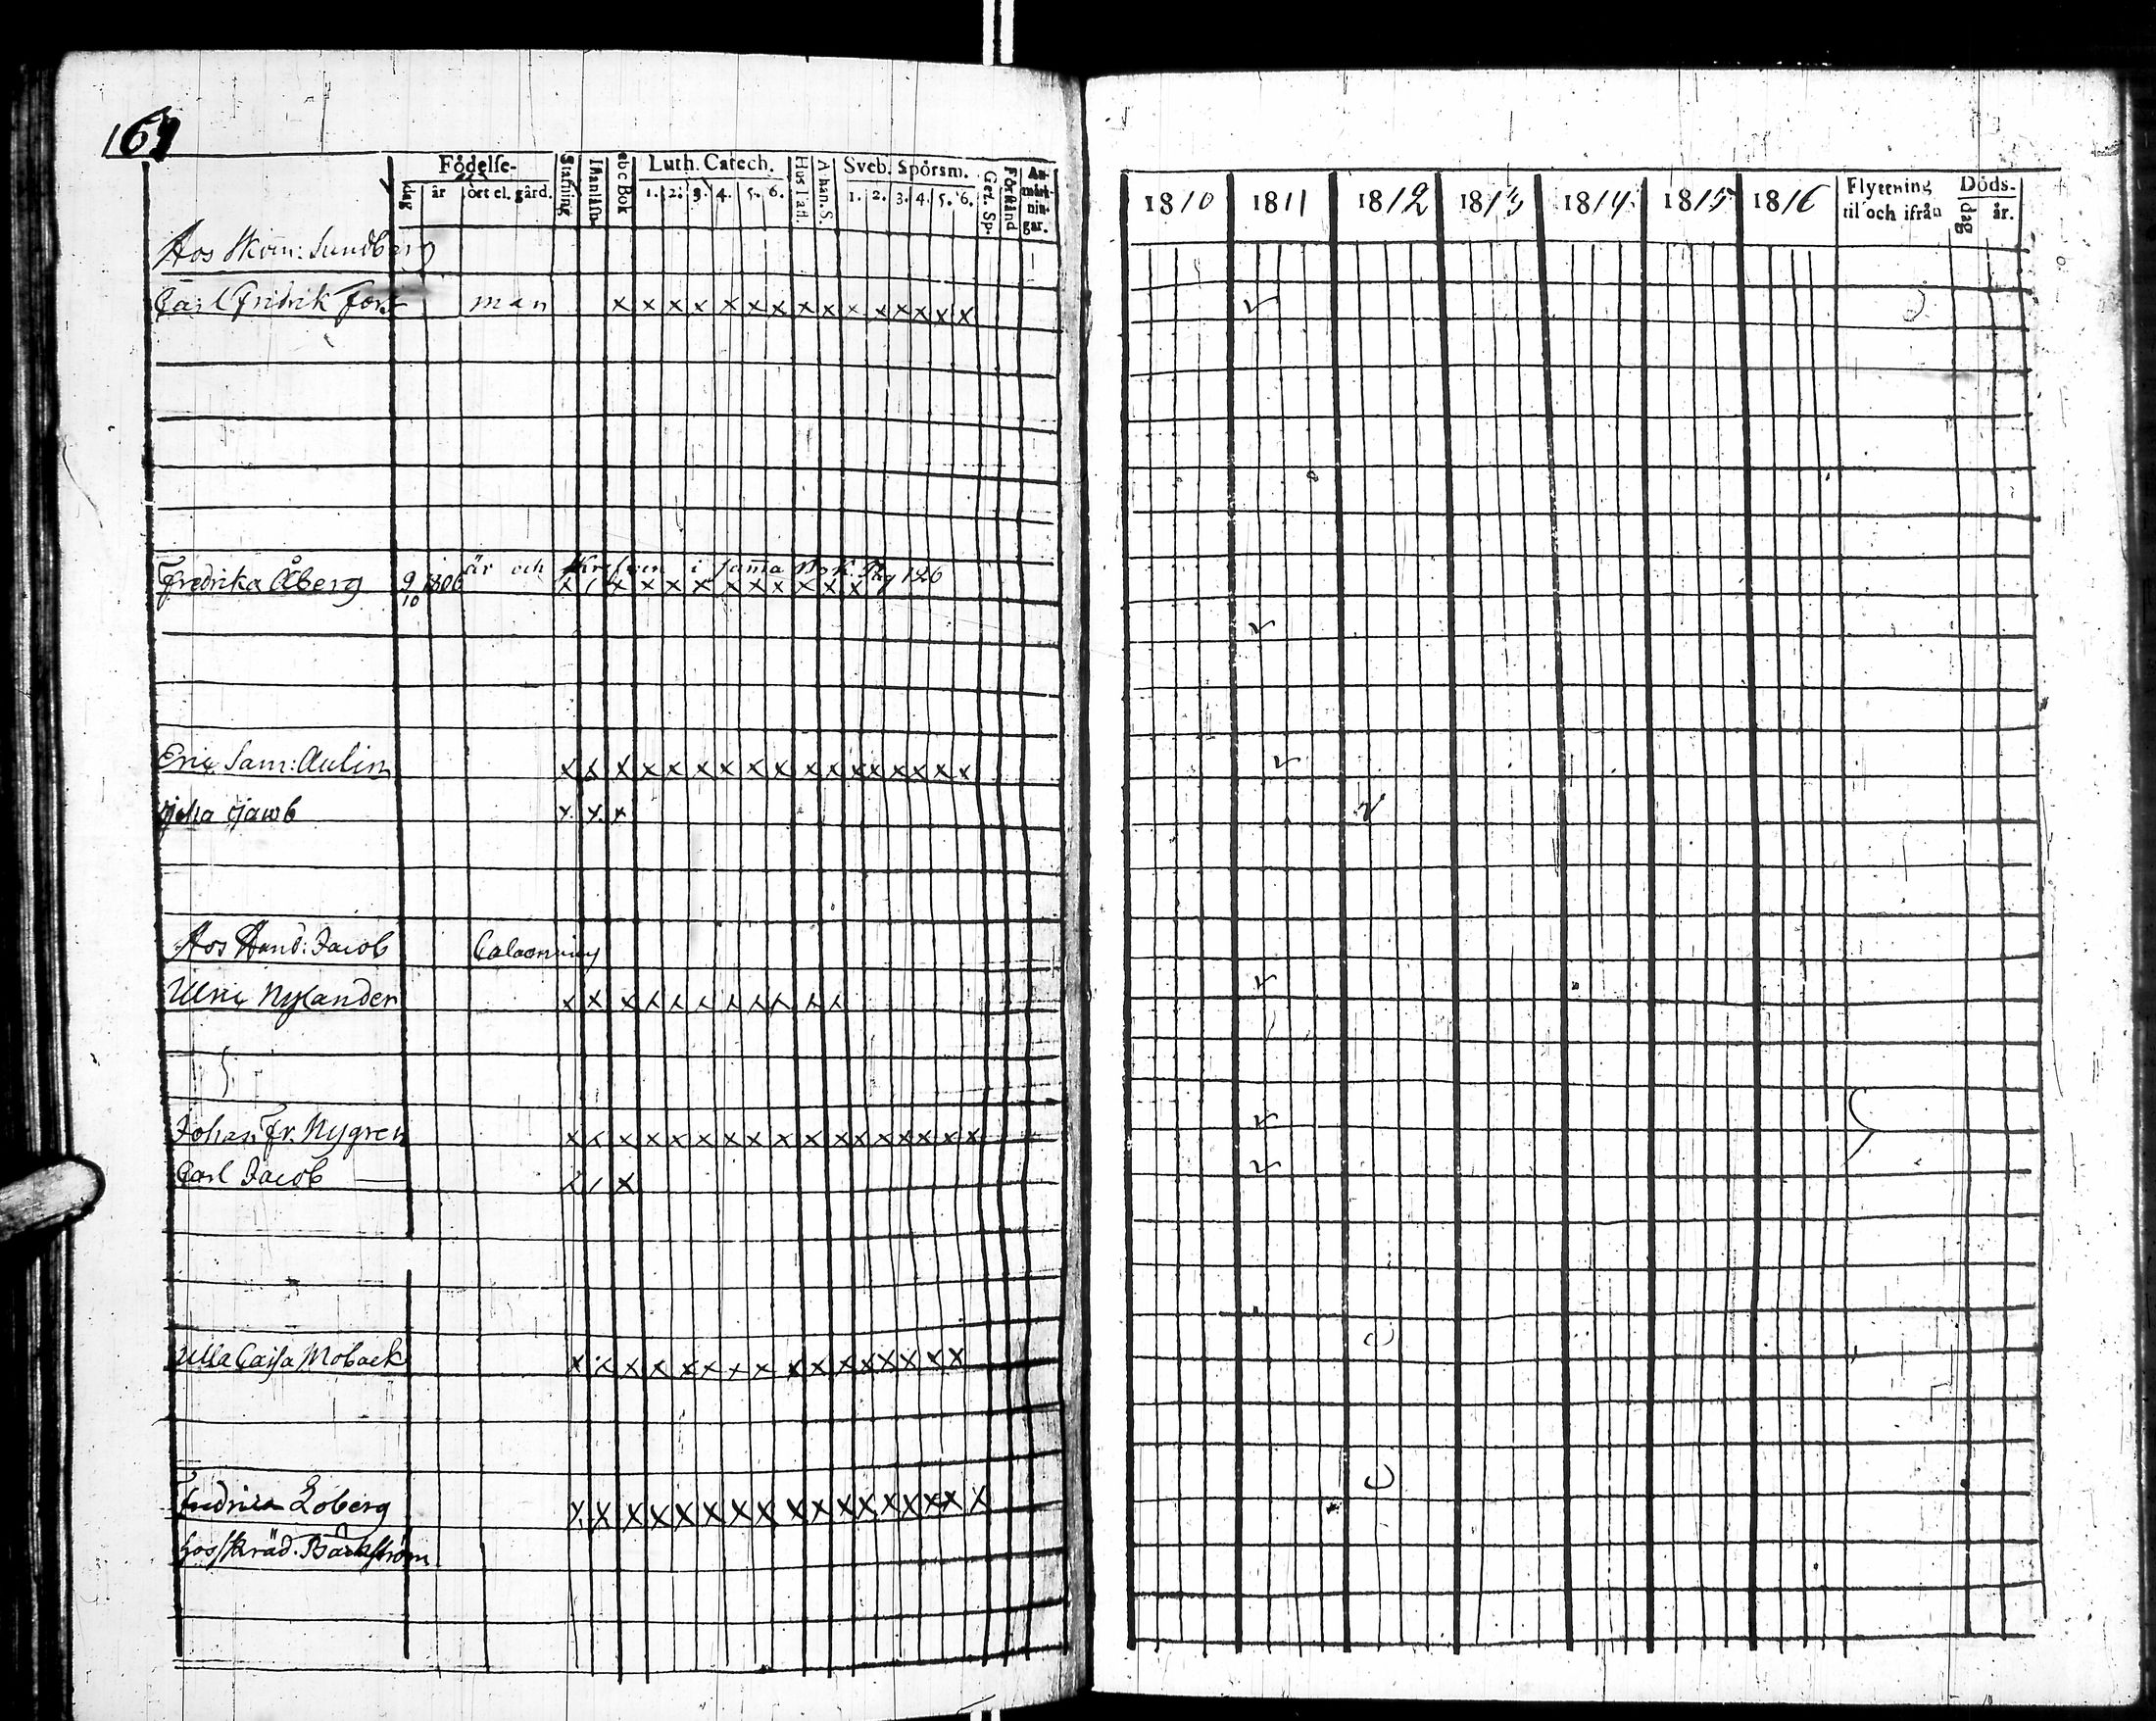 169
Födelse-
dag år ort el. gård.
Stafning
Innanläsn.
abc Bok
Luth. Catech.
1. 2. 3. 4. 5. 6.
Hus Tafl.
Athan. S.
Sveb. Spörsm.
1. 2. 3. 4. 5. 6.
Gert. Sp.
Förstånd
An-
märk-
nin-
gar.
Hos Skom: Sundberg
Carl Fridrik Forsman x x x x x x x x x x x x x x x
är och skrefven i sama Bok. Pag 126
Fredrika Åberg 9/10 1806 x x x x x x x x x x x x
Eric Sam: Aulin x x x x x x x x x x x x x x x x
Joha Jacob x x x
Hos Hand: Jacob
Ulric Nylander x x x x x x x x x x x
Johan Fr. Nygren x x x x x x x x x x x x x x x x x
Carl Jacob — x x x
Ulla Caisa Moback x x x x x x x x x x x x x x x x
Fredrica Loberg x x x x x x x x x x x x x x x x x
hos skräd. Bäckström
1810 1811 1812 1813 1814 1815 1816
Flyttning
til och ifrån
Döds-
dag år.